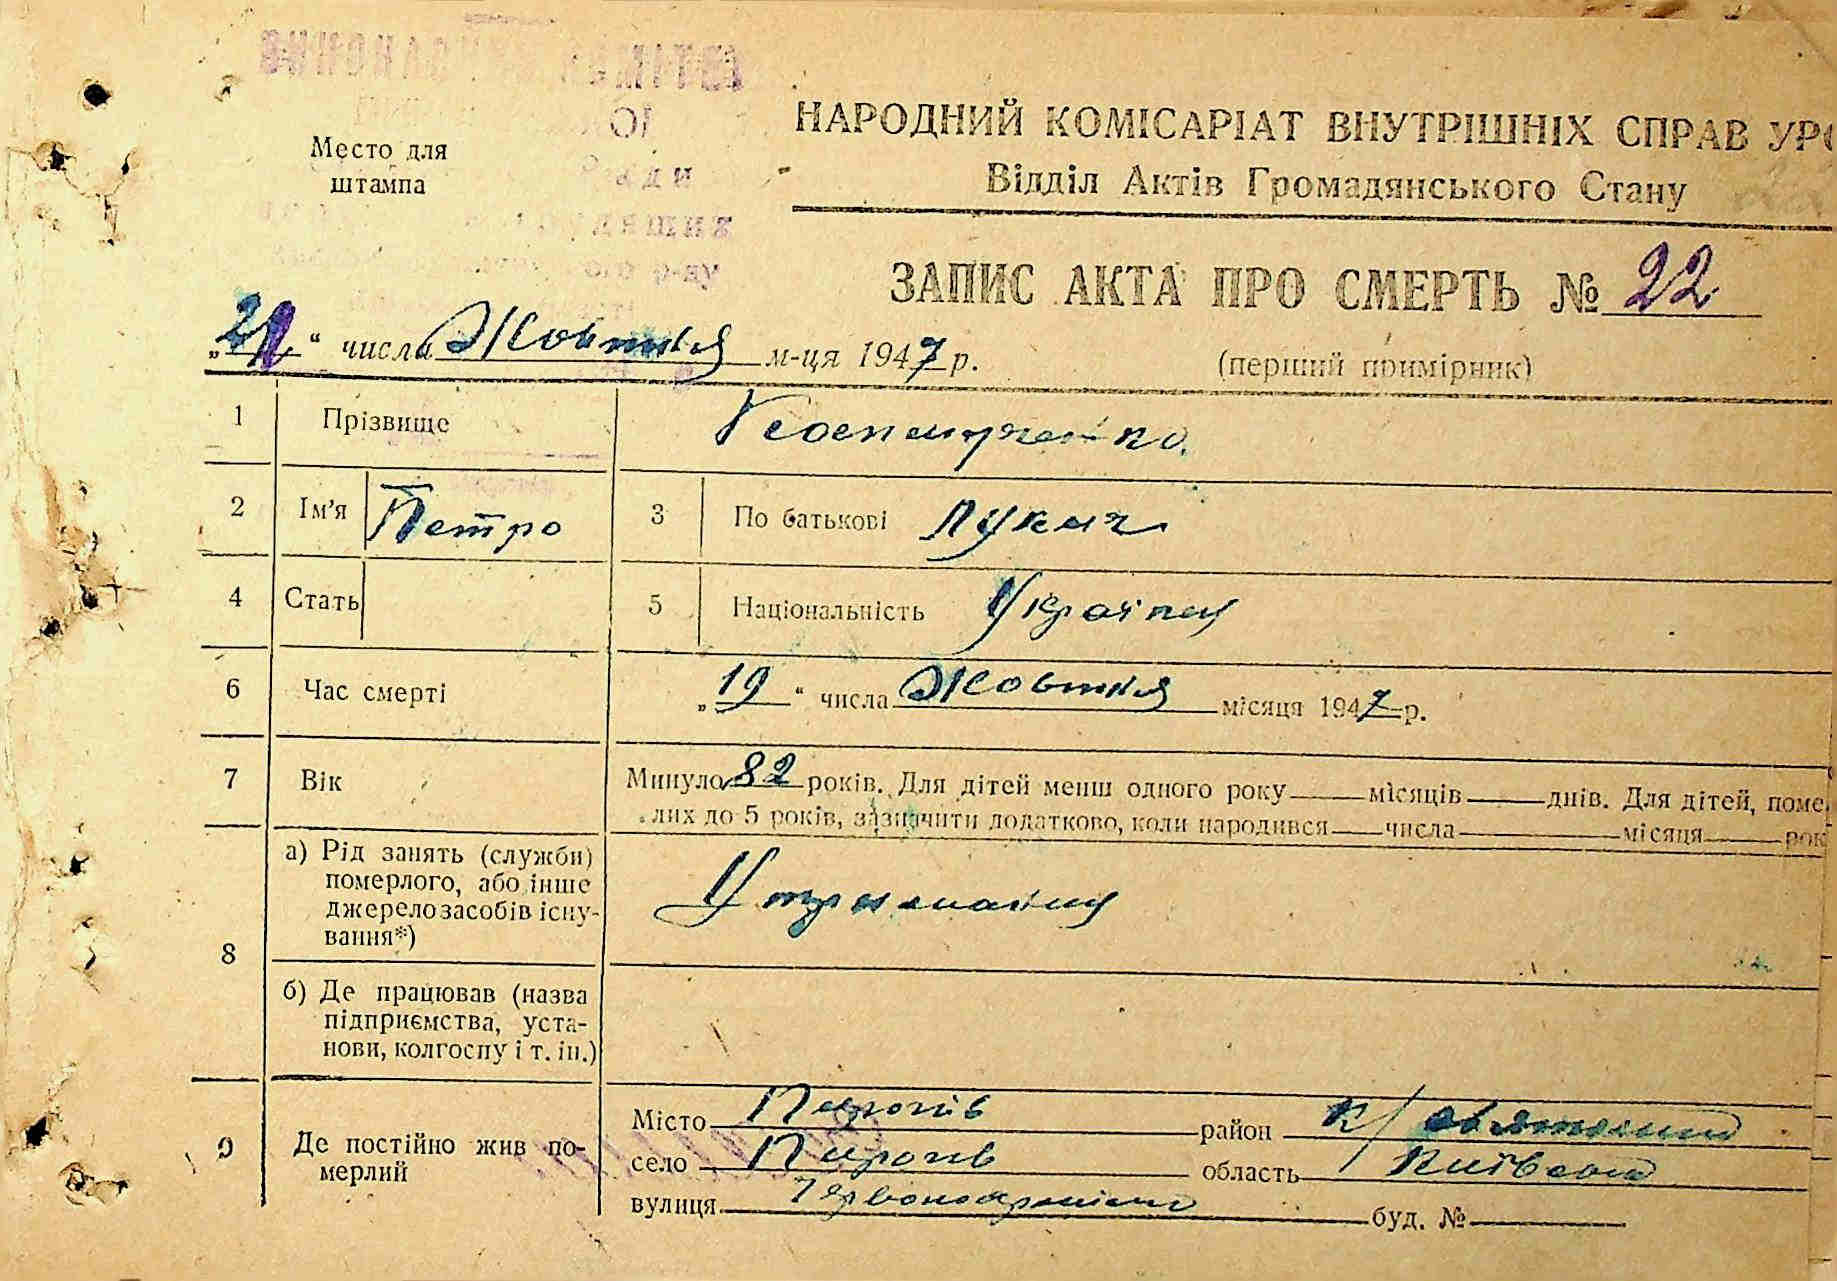 Место для
штампа
НАРОДНИЙ КОМІСАРІАТ ВНУТРІШНІХ СПРАВ УРС
Відділ Актів Громадянського Стану
ЗАПИС АКТА ПРО СМЕРТЬ № 22
„21“ числа Жовтня м-ця 1947 р.
(перший примірник)
1 Прізвище
2 Ім'я Петро 3 По батькові Лукич
4 Стать 5 Національність Українец
6 Час смерті „19“ числа Жовтня місяця 1947 р.
7 Вік Минуло 82 років. Для дітей менш одного року місяців днів. Для дітей, поме
лих до 5 років, зазначити додатково, коли народився числа місяця рок
8 а) Рід занять (служби)
померлого, або інше
джерело засобів існу-
вання*)
б) Де працював (назва
підприємства, уста-
нови, колгоспу і т. ін.)
9 Де постійно жив по-
мерлий
Місто Пирогів район К/
село Пирогів область Київська
вулиця Червоноармійська буд. №